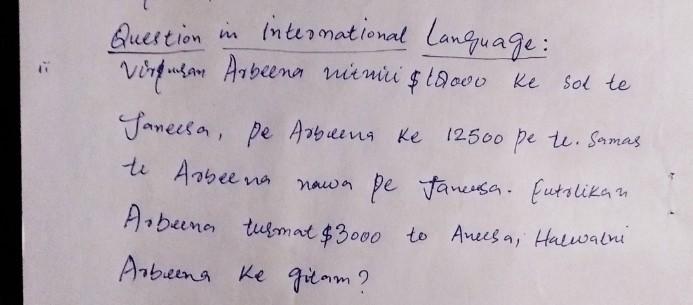 Question in International Language:
Arbeena $ ke sol te
Janeesa, pe Arbeena ke 12500 pe te. Samas
te Arbeena nawa pe Janeesa. Eutolikan
Arbeena tusmat $3000 to Aneesa, Halwalni
Arbeena ke gitam?